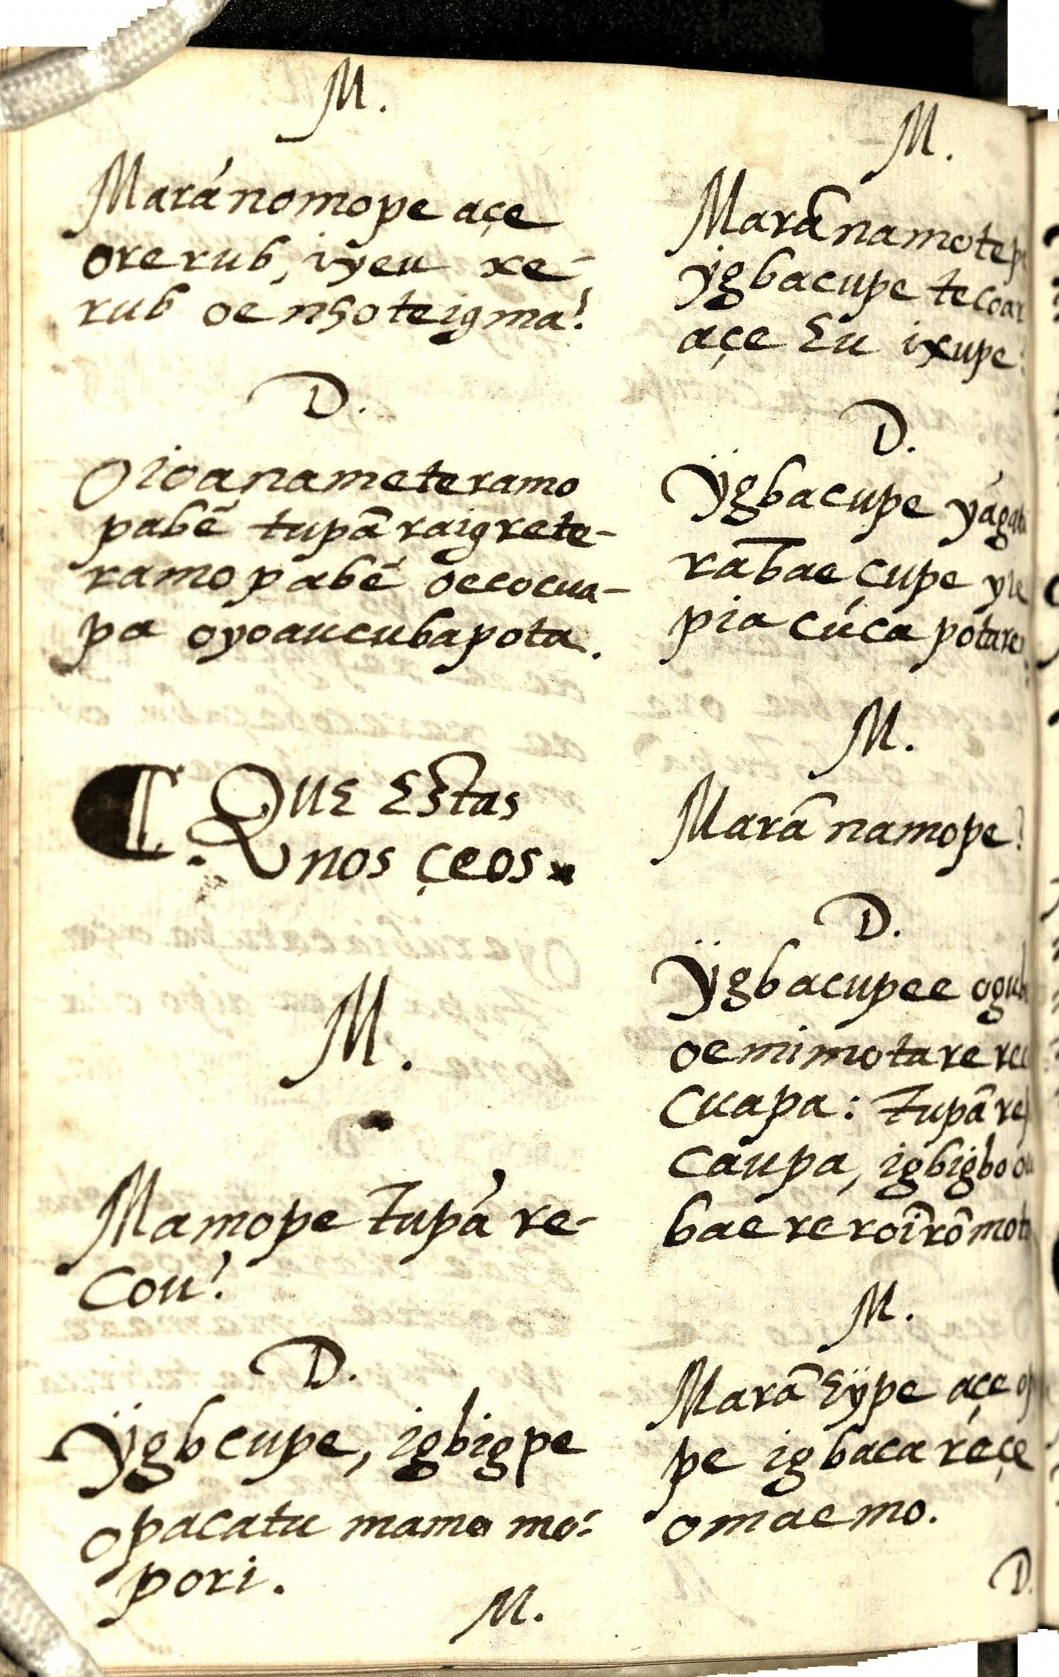 M.
Maránomope açe
orerub, iyeu xe-
rub oe nhoteigma?
D.
Oioanameteramo
pabẽ tupã raigrete-
ramo pabẽ oecocua-
pa oyoaucubapota.
QUE Estas
nos çeos
M.
Mamope Tupã re-
cou?
D.
Ÿgbcupe, igbigpe
opacatu mamo mo-
pori.
M.
M.
Marã namotepe
ÿgbacupe tecoar
açe Eu ixupe?
D.
Ÿgbacupe yágatu
rãbae çupe yre
pia cúca potare
M.
Marã namope?
D.
Ÿgbacupee ogub
oemimotare rec
cuapa: Tupã rep
caupa, igbigbo ou
bae re roĩrõmota
M.
Marã Eÿpe açe op
pe igbaca réçe
omaemo.
D.